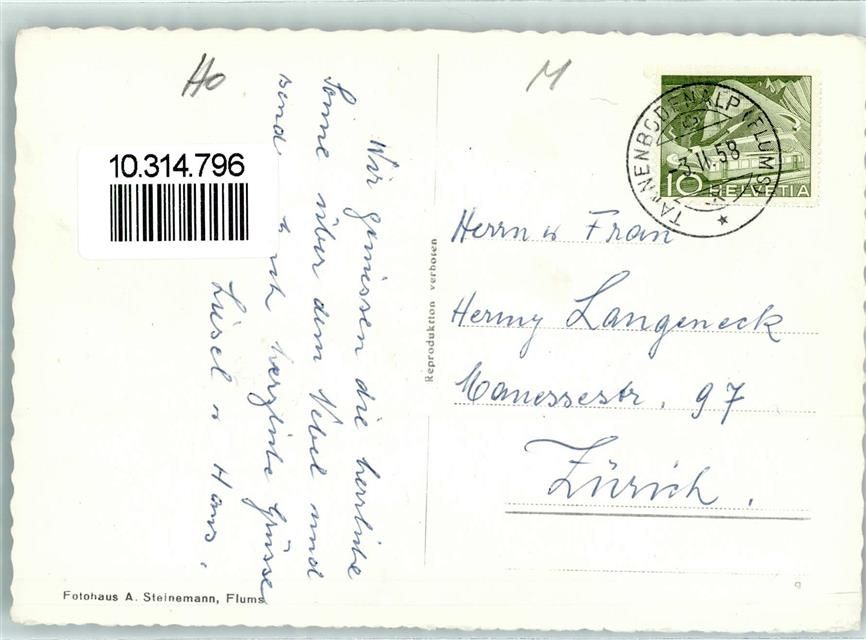 Ho
M
10.314.796
TANNENBODENALP (FLUMS)
3.II.58
10 HELVETIA
Wir geniessen die herrliche
Sonne über dem Nebel und
send euch herzliche Grüsse
Liesel u Hans.
Reproduktion verboten
Herrn u Frau
Hermy Langeneck
Manessestr. 97
Zürich.
Fotohaus A. Steinemann, Flums
9